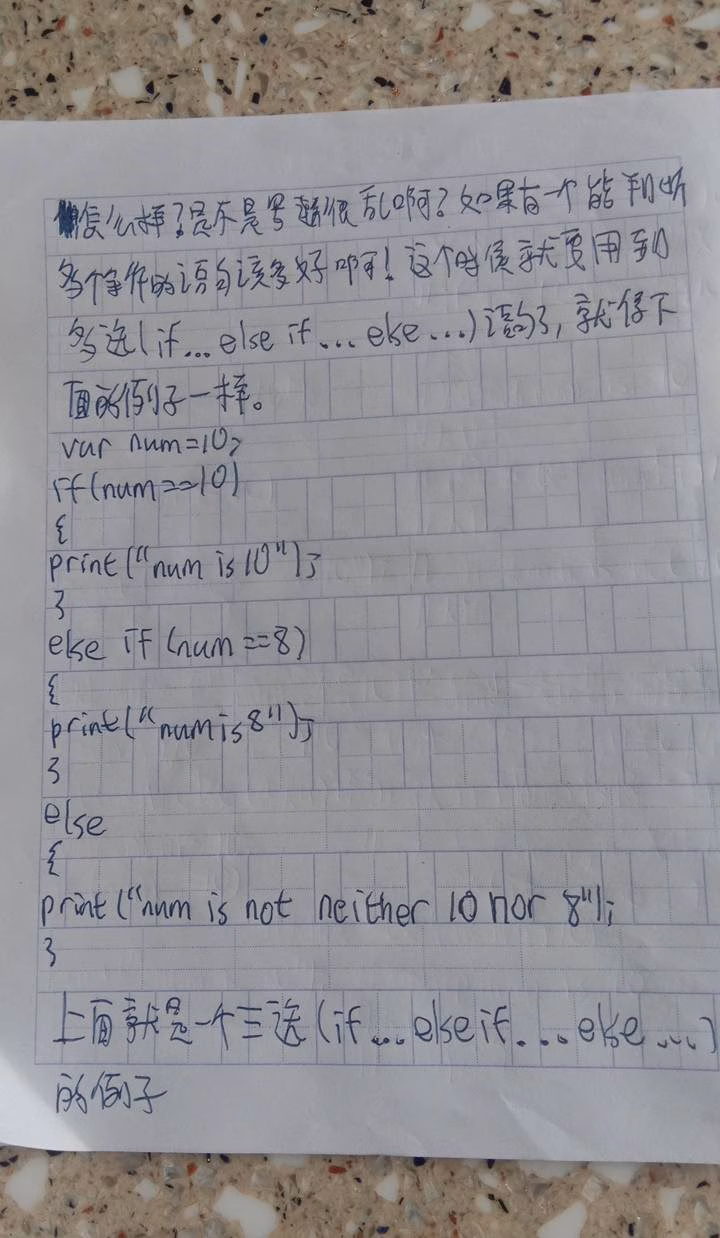 怎么样?是不是号很乱啊?如果有一个能判断
多个条件的语句该多好啊!这个时候就要用到
多选(if...else if...else...)语句了,就像下
面的例子一样。
var num=10;
if(num==10)
{
print("num is 10");
}
else if (num==8)
{
print("num is 8");
}
else
{
print("num is not neither 10 nor 8");
}
上面就是一个三选(if...else if...else...)
的例子